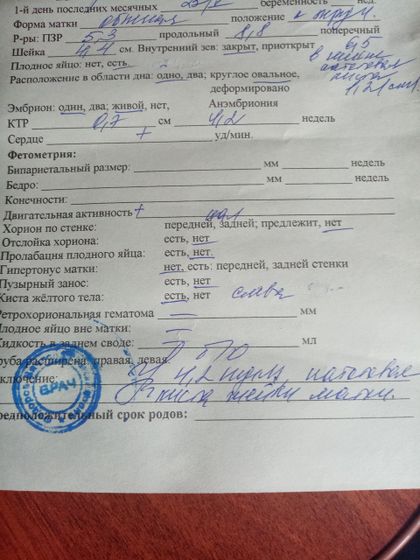 1-й день последних месячных беременность нед.
Форма матки обычная положение
Р-ры: ПЗР 5,3 продольный 8,8 поперечный
Шейка 4,4 см. Внутренний зев: закрыт, приоткрыт
Плодное яйцо: нет, есть.
Расположение в области дна: одно, два; круглое овальное,
деформовано
Эмбрион: один, два; живой, нет, Анэмбриония
КТР 0,7 см 4,2 недель
Сердце + уд/мин.
Фетометрия:
Бипариетальный размер: мм недель
Бедро: мм недель
Конечности:
Двигательная активность +
Хорион по стенке: передней, задней; предлежит, нет
Отслойка хориона: есть, нет
Пролабация плодного яйца: есть, нет.
Гипертонус матки: нет, есть: передней, задней стенки
Пузырный занос: есть, нет
Киста жёлтого тела: есть, нет слева
Ретрохориональная гематома — мм
Плодное яйцо вне матки: —
Жидкость в заднем своде: — мл
руба расширена, правая, левая
ключение: 4,2 нед
ВРАЧ
киста шейки матки.
редположительный срок родов: